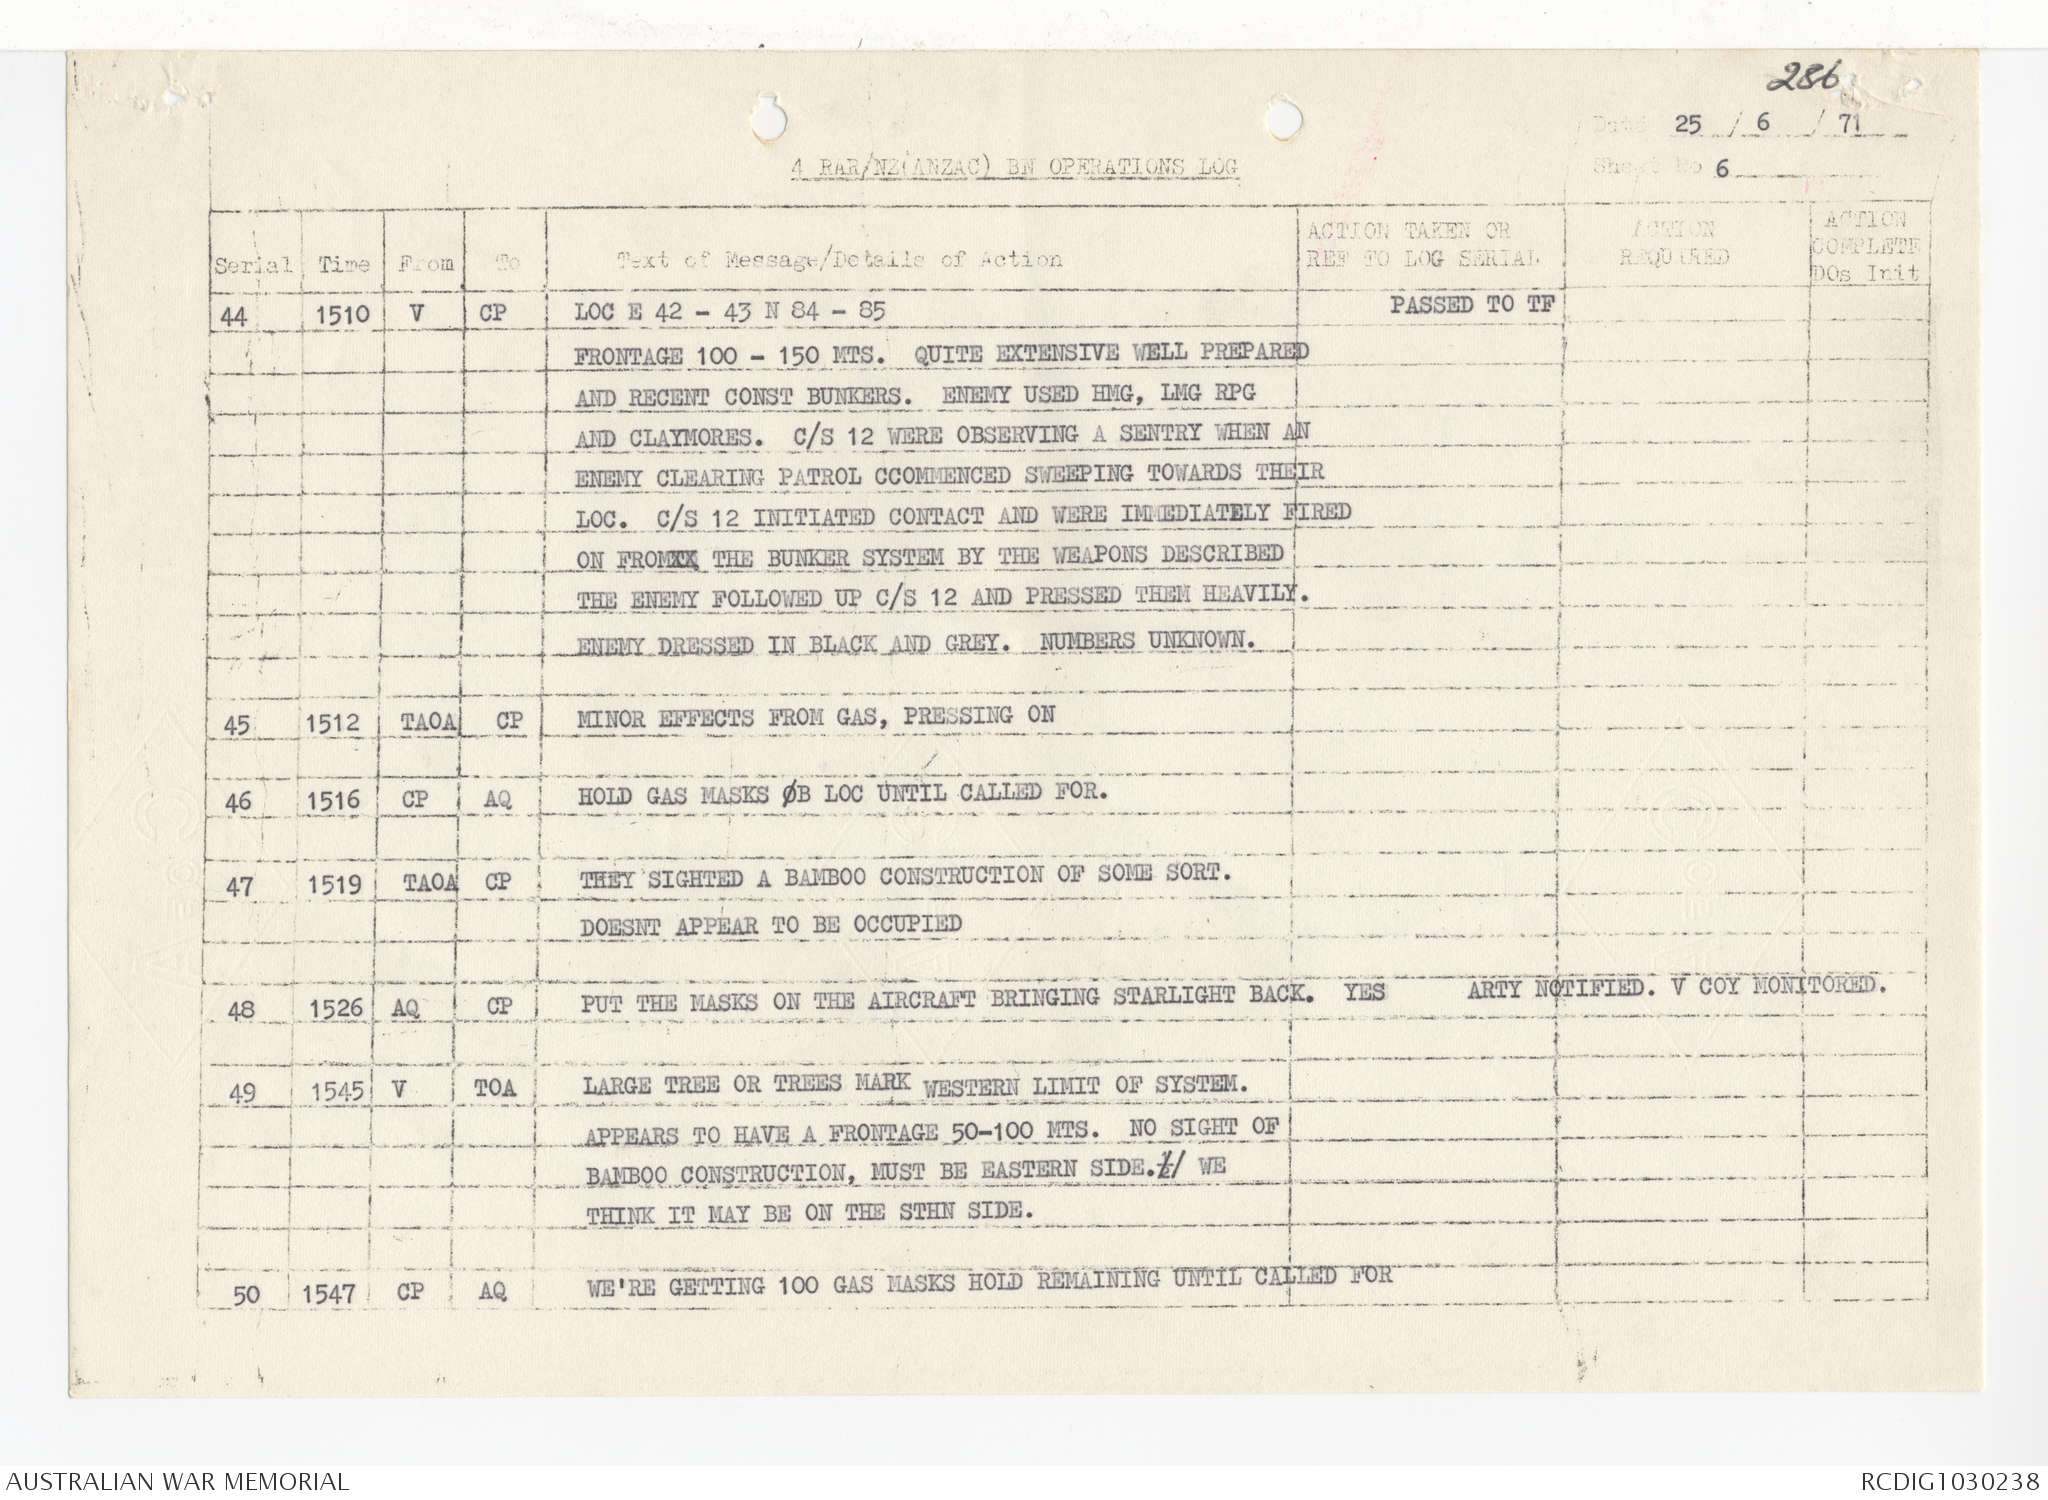 286
Date 25 / 6 / 71
4 RAR/NZ(ANZAC) BN OPERATIONS LOG
Sheet No 6
Serial Time From To Text of Message/Details of Action ACTION TAKEN OR REF TO LOG SERIAL ACTION REQUIRED ACTION COMPLETE DOs Init
44 1510 V CP LOC E 42 - 43 N 84 - 85 PASSED TO TF
FRONTAGE 100 - 150 MTS. QUITE EXTENSIVE WELL PREPARED
AND RECENT CONST BUNKERS. ENEMY USED HMG, LMG RPG
AND CLAYMORES. C/S 12 WERE OBSERVING A SENTRY WHEN AN
ENEMY CLEARING PATROL CCOMMENCED SWEEPING TOWARDS THEIR
LOC. C/S 12 INITIATED CONTACT AND WERE IMMEDIATELY FIRED
ON FROMXX THE BUNKER SYSTEM BY THE WEAPONS DESCRIBED
THE ENEMY FOLLOWED UP C/S 12 AND PRESSED THEM HEAVILY.
ENEMY DRESSED IN BLACK AND GREY. NUMBERS UNKNOWN.
45 1512 TAOA CP MINOR EFFECTS FROM GAS, PRESSING ON
46 1516 CP AQ HOLD GAS MASKS ØB LOC UNTIL CALLED FOR.
47 1519 TAOA CP THEY SIGHTED A BAMBOO CONSTRUCTION OF SOME SORT.
DOESNT APPEAR TO BE OCCUPIED
48 1526 AQ CP PUT THE MASKS ON THE AIRCRAFT BRINGING STARLIGHT BACK. YES ARTY NOTIFIED. V COY MONITORED.
49 1545 V TOA LARGE TREE OR TREES MARK WESTERN LIMIT OF SYSTEM.
APPEARS TO HAVE A FRONTAGE 50-100 MTS. NO SIGHT OF
BAMBOO CONSTRUCTION, MUST BE EASTERN SIDE. / WE
THINK IT MAY BE ON THE STHN SIDE.
50 1547 CP AQ WE'RE GETTING 100 GAS MASKS HOLD REMAINING UNTIL CALLED FOR
AUSTRALIAN WAR MEMORIAL RCDIG1030238